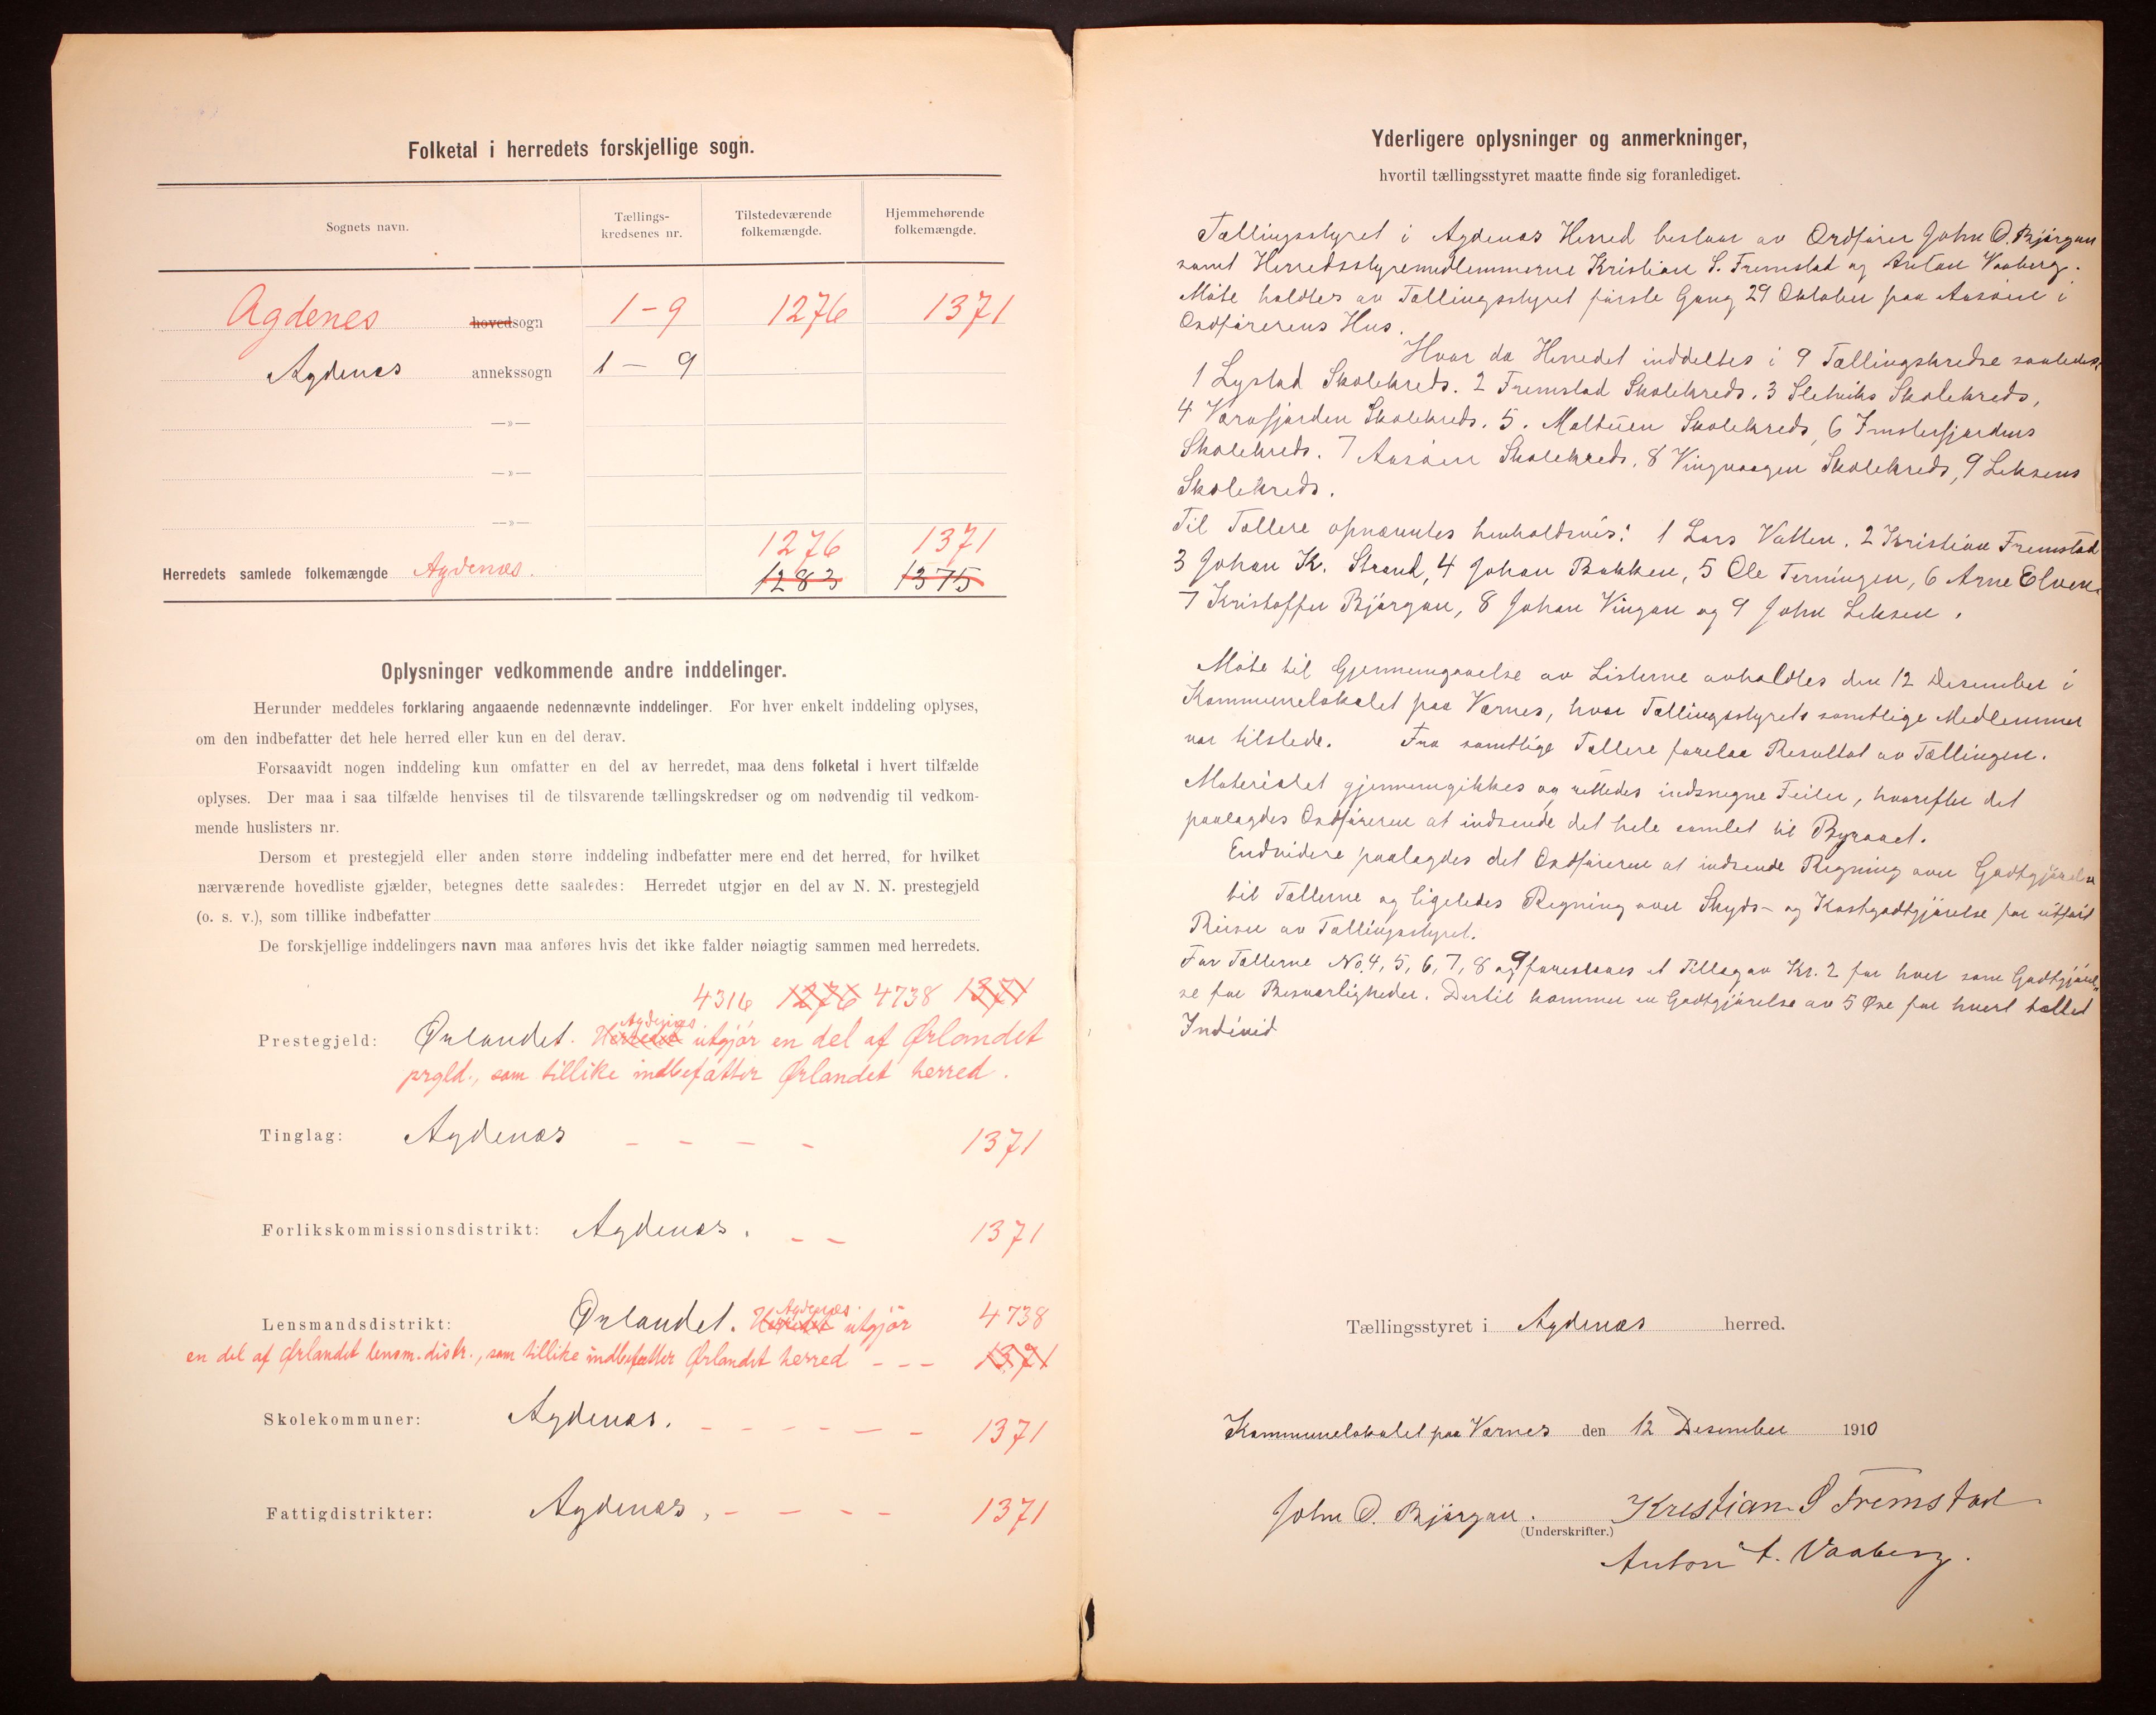 Folketal i herredets forskjellige sogn.
Sognets navn. Tællings- kredsenes nr. Tilstedeværende folkemængde. Hjemmehørende folkemængde.
Agdenes hovedsogn 1-9 1276 1371
Agdenes annekssogn 1 - 9
—»—
—»—
—»—
1276 1371
Herredets samlede folkemængde Agdenæs. 1283 1375
Oplysninger vedkommende andre inddelinger.
Herunder meddeles forklaring angaaende nedennævnte inddelinger. For hver enkelt inddeling oplyses,
om den indbefatter det hele herred eller kun en del derav.
Forsaavidt nogen inddeling kun omfatter en del av herredet, maa dens folketal i hvert tilfælde
oplyses. Der maa i saa tilfælde henvises til de tilsvarende tællingskredser og om nødvendig til vedkom-
mende huslisters nr.
Dersom et prestegjeld eller anden større inddeling indbefatter mere end det herred, for hvilket
nærværende hovedliste gjælder, betegnes dette saaledes: Herredet utgjør en del av N. N. prestegjeld
(o. s. v.), som tillike indbefatter
De forskjellige inddelingers navn maa anføres hvis det ikke falder nøiagtig sammen med herredets.
4316 1276 4738 1371
Agdenæs
Prestegjeld: Ørlandet. Herredet utgjør en del af Ørlandet
prgld., som tillike indbefatter Ørlandet herred.
Tinglag: Agdenæs - - - - 1371
Forlikskommissionsdistrikt: Agdenæs. - - 1371
Agdenæs
Lensmandsdistrikt: Ørlandet. Herredet utgjör 4738
en del af Ørlandet lensm. distr., som tillike indbefatter Ørlandet herred - - - 1371
Skolekommuner: Agdenæs. - - - - - - 1371
Fattigdistrikter: Agdenæs, - - - - 1371
Yderligere oplysninger og anmerkninger,
hvortil tællingsstyret maatte finde sig foranlediget.
Tællingsstyret i Agdenæs Herred bestaar av Ordfører John O. Bjørgan
samt Herredsstyremedlemmerne Kristian S. Fremstad og Anton Vaaberg.
Møte holdtes av Tællingsstyret første Gang 29 Oktober paa Aasøen i
Ordførerens Hus.
Hvor da Herredet inddeltes i 9 Tællingskredse saaledes:
1 Lystad Skolekreds. 2 Fremstad Skolekreds. 3 Sletviks Skolekreds,
4 Værnfjorden Skolekreds. 5. Moltuen Skolekreds, 6 Imsterfjordens
Skolekreds. 7 Aasøen Skolekreds. 8 Vingvaagen Skolekreds, 9 Leksens
Skolekreds.
Til Tællere opnævntes henholdsvis: 1 Lars Vatten. 2 Kristian Fremstad
3 Johan K. Strand, 4 Johan Bakken, 5 Ole Terningen, 6 Arne Elven.
7 Kristoffer Bjørgan, 8 Johan Vingan og 9 John Leksen.
Møte til Gjennemgaaelse av Listerne avholdtes den 12 Desember i
Kommunelokalet paa Værnes, hvor Tællingsstyrets samtlige Medlemmer
var tilstede. Fra samtlige Tællere forelaa Resultat av Tællingen.
Materialet gjennemgikkes og rettedes indsnegne Feiler, hvorefter det
paalagdes Ordføreren at indsende det hele samlet til Byraaet.
Endvidere paalagdes det Ordføreren at indsende Regning over Godtgjørelse
til Tællerne og ligeledes Regning over Skyds- og Kostgodtgjørelse for utført
Reiser av Tællingsstyret.
For Tællerne No. 4, 5, 6, 7, 8 og 9 foreslaaes et Tillæg av Kr. 2 for hver som Godtgjørel-
se for Besværligheder. Dertil kommer en Godtgjørelse av 5 Øre for hvert tællet
Individ
Tællingsstyret i Agdenæs herred.
Kommunelokalet paa Værnes den 12 Desember 1910
John O. Bjørgan. Kristian S Fremstad
(Underskrifter.)
Anton A. Vaaberg.